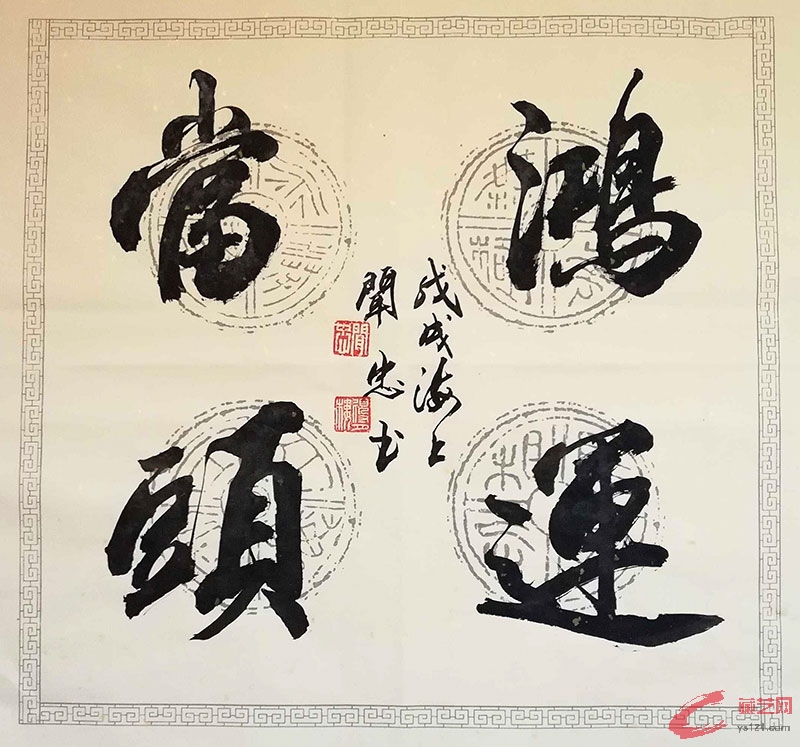 鴻運
當頭
戊戌海上
聞忠书
聞忠
藏艺网
ys121.com